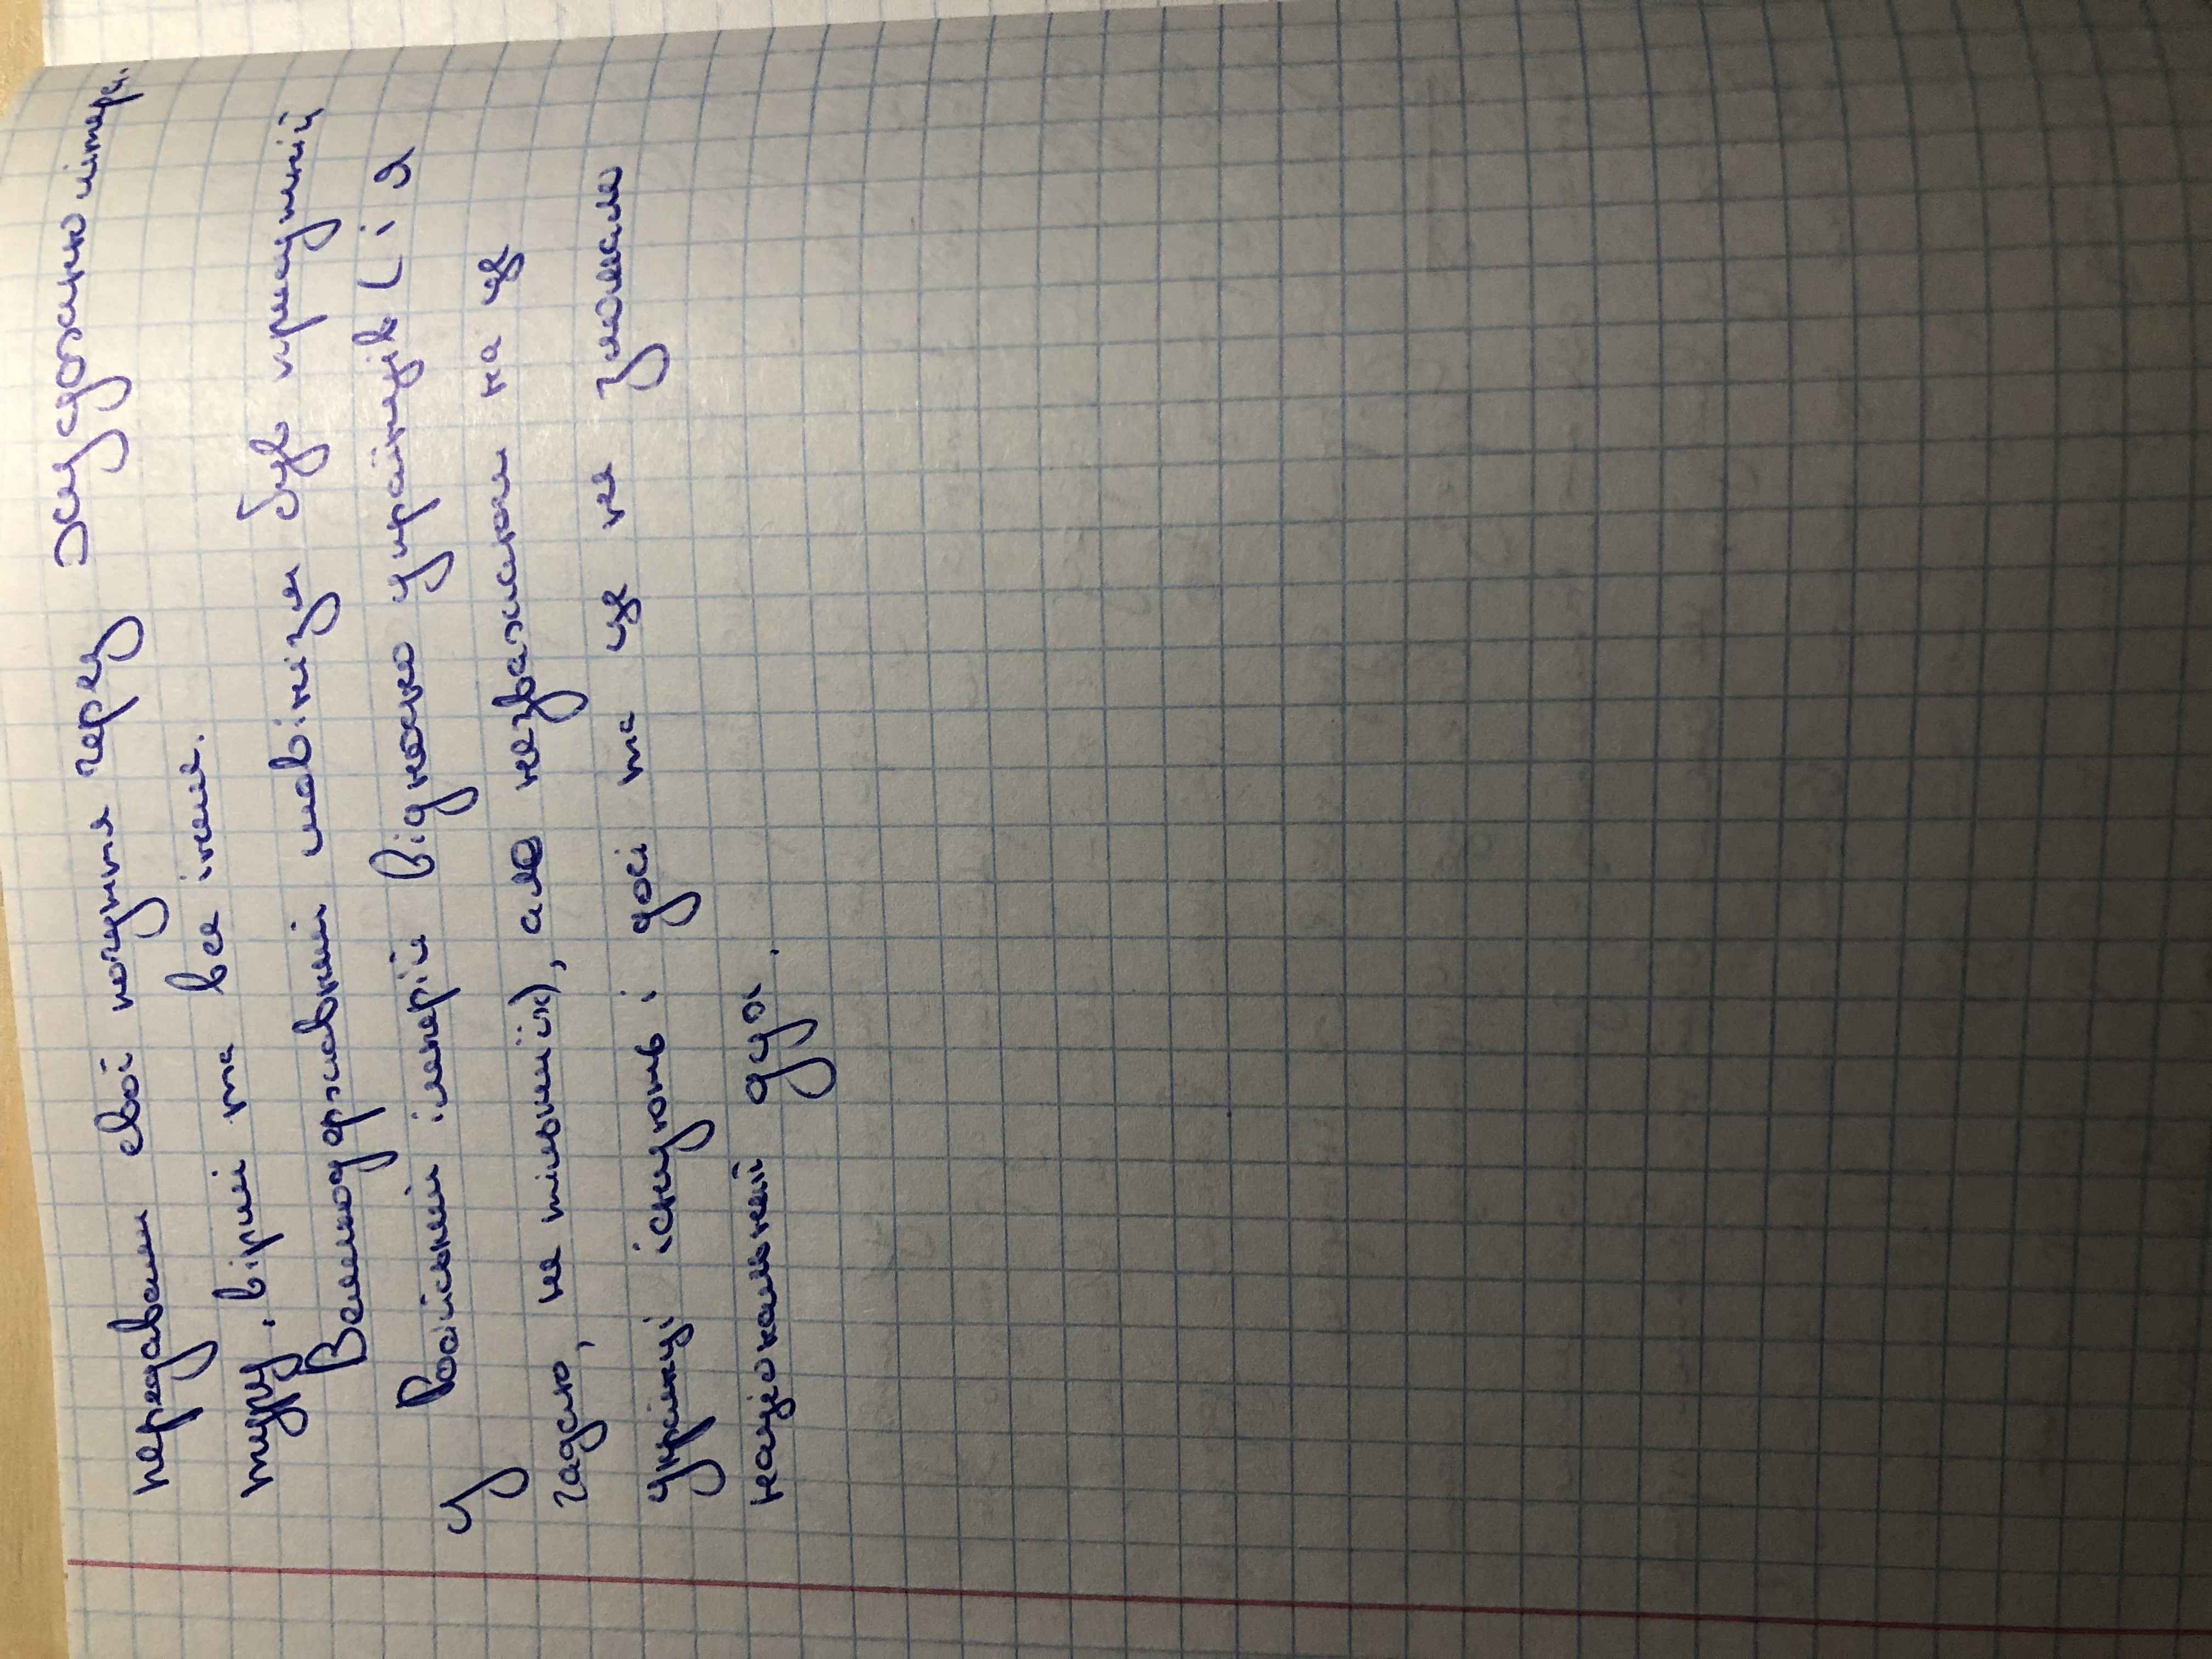 передавали свої почуття через художню літера-
туру, вірші та все інше.
Великодержавний шовінізм був присутній
у Російській імперії відносно українців (і я
гадаю, не тільки їх), але незважаючи на це
українці існують і досі та це не зломало
національний дух.